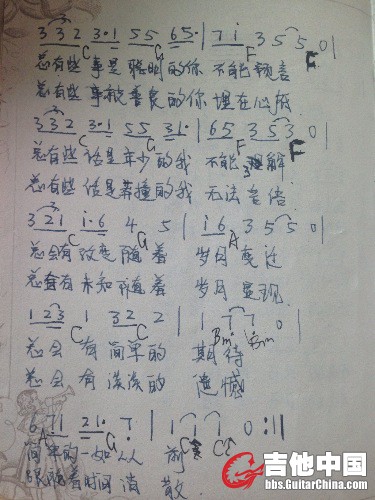 3 3 2 3·1 5 5 6 5· | 7 i 3 5 5 0 |
C C G F F
总有些 事是 聪明 的你 不能 预言
总有些 事就 善良 的你 埋在 心底
3 3 2 3·1 5 5 3 1· | 6 5 3 5 3 0 |
C C G F F
总有些 话是 年少 的我 不能 理解
总有些 话是 莽撞 的我 无法
3 2 1 i·6 4 5 | i 6 3 5 5 0
C G A
总会有 改变 随着 岁月 变迁
总会有 未知 随着 岁月 显现
1 2 3 1 3 2 2 | 1 7 7 0 |
C C Bm Bm
总会 有 简单的 期待
总会 有 淡淡的 遗憾
6 7 1 2 1· 7 | 1 1 1 0 :||
A G C C
简单的 一如 从前
跟随着 时间 消散
吉他中国
bbs.GuitarChina.com